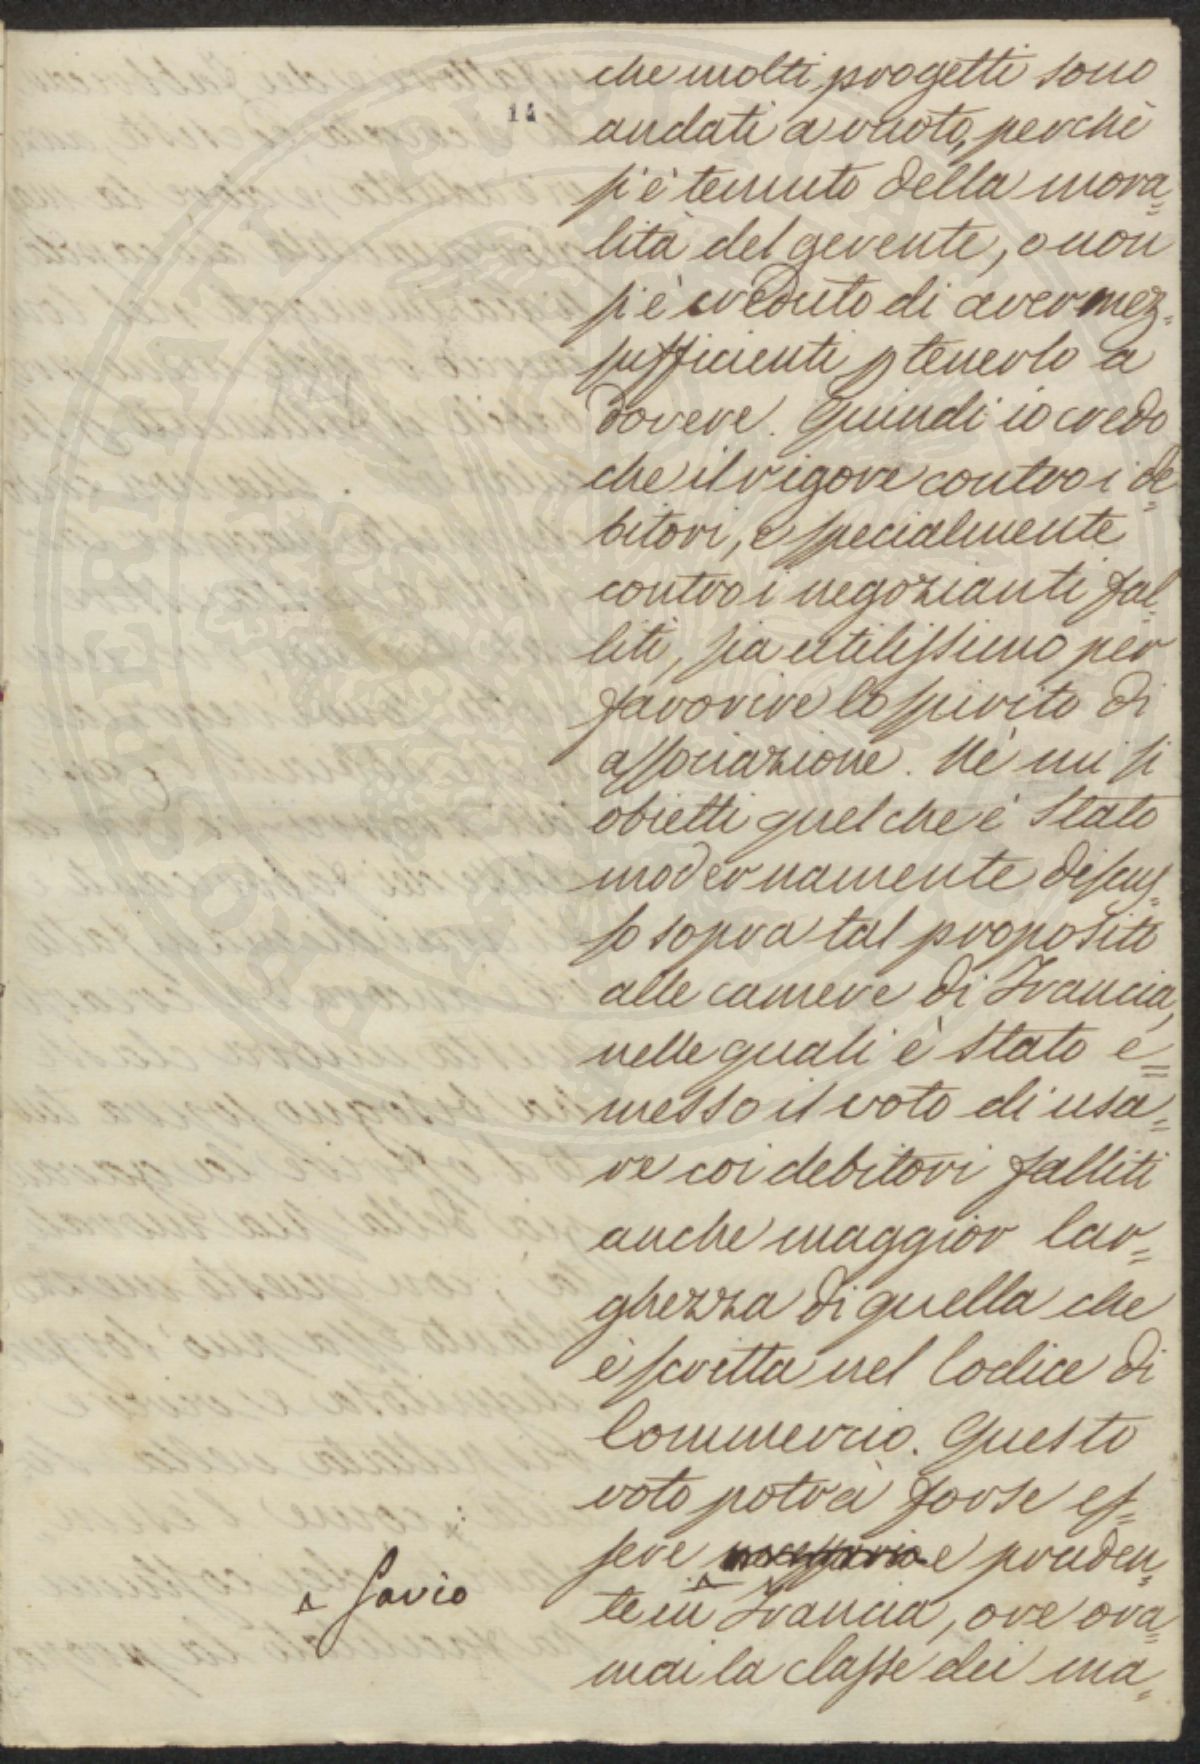 14
che molti progetti sono
andati a vuoto, perchè
si è temuto della mora=
lità del gerente, o non
si è creduto di aver mez=
sufficienti p tenerlo a
dovere. Quindi io credo
che il rigore contro i de=
bitori, e specialmente
contro i negozianti fal=
liti, sia utilissimo per
favorire lo spirito di
associazione. Nè mi si
obietti quel che è stato
modernamente discus=
so sopra tal proposito
alle camere di Francia,
nelle quali è stato e=
messo il voto di usa=
re coi debitori falliti
anche maggior lar=
ghezza di quella che
è scritta nel Codice di
Commercio. Questo
voto potrà forse es=
sere necessario e pruden=
te in Francia, ove ora=
mai la classe dei ma=
savio
POSTERITATI